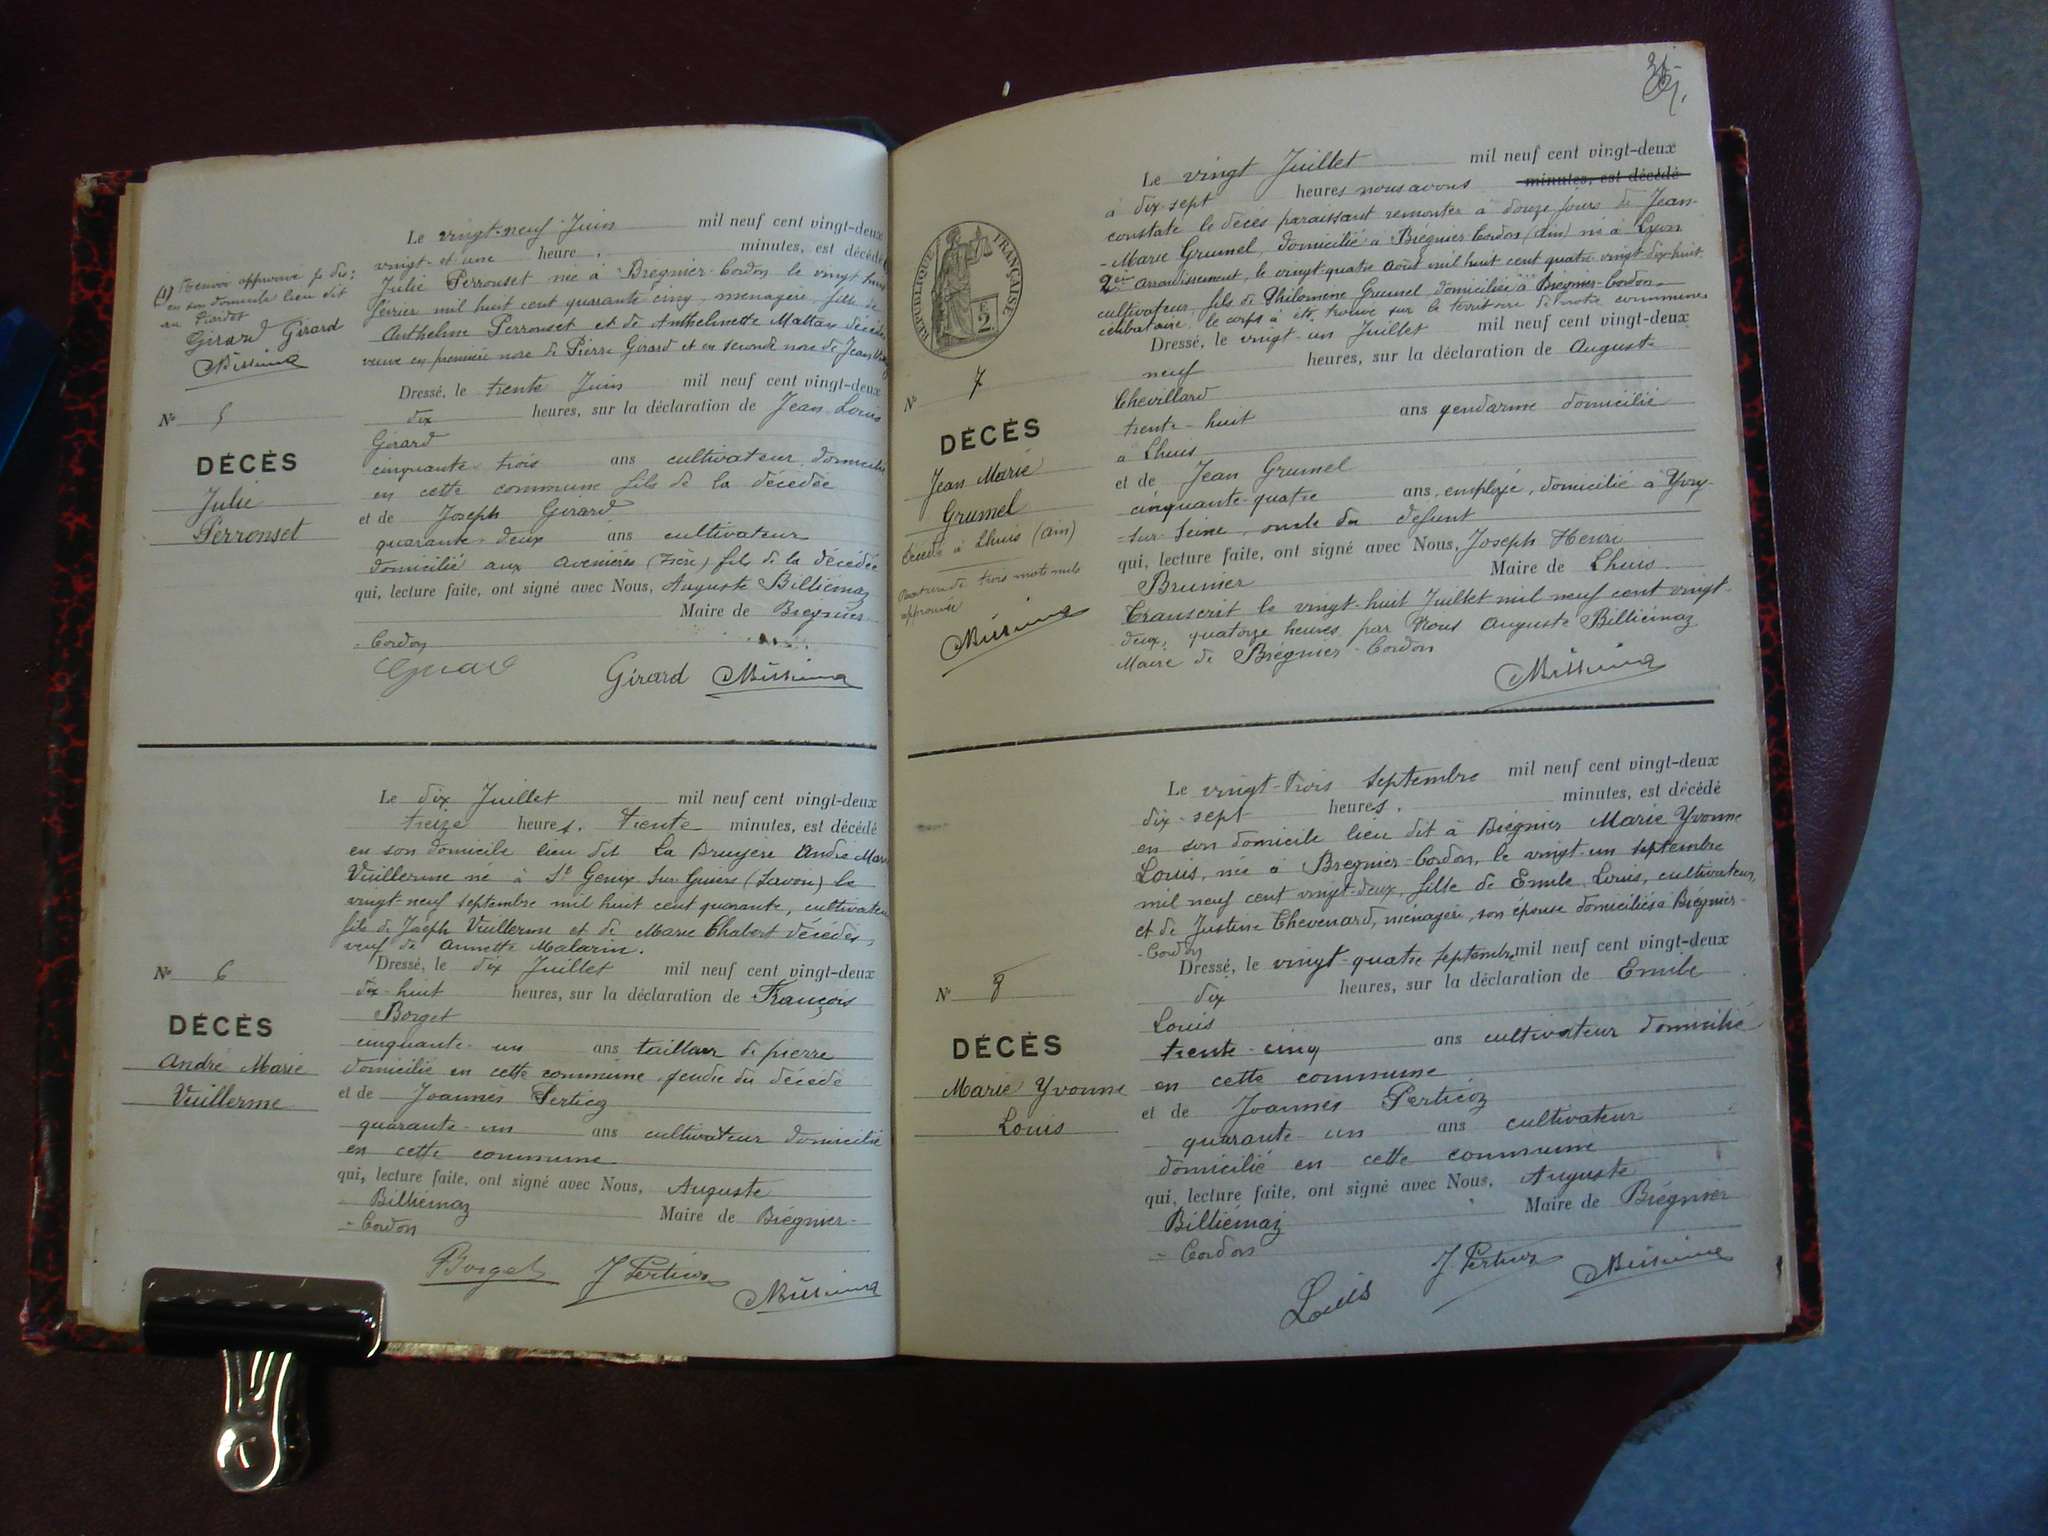 (1) Renvoi approuvé
en son domicile lieu dit
au
Girard Girard
Nº 5
DÉCÈS
Julie
Perronset
Le vingt-neuf Juin mil neuf cent vingt-deux
vingt et une heure, minutes, est décédé
Julie Perronset née à Brégnier-Cordon le vingt huit
février mil huit cent quarante cinq, ménagère, fille de
Anthelme Perronset et de Anthelmette Mattan décédés
veuve en première noce de Pierre Girard et en seconde noce de Jean
Dressé, le trente Juin mil neuf cent vingt-deux
dix heures, sur la déclaration de Jean Louis
Girard
cinquante trois ans cultivateur domicilié
en cette commune fils de la décédée
et de Joseph Girard
quarante-deux ans cultivateur
domicilié aux avenières (Isère) fils de la décédée
qui, lecture faite, ont signé avec Nous, Auguste Billiémaz
Maire de Brégnier
-Cordon
Girard Girard
Nº 6
DÉCÈS
André Marie
Vuillerme
Le dix Juillet mil neuf cent vingt-deux
treize heures, trente minutes, est décédé
en son domicile lieu dit La Bruyère André Marie
Vuillerme né à St Genix sur Guiers (Savoie) le
vingt-neuf septembre mil huit cent quarante, cultivateur
fils de Joseph Vuillerme et de Marie Chabert décédés,
veuf de Annette Malarin.
Dressé, le dix Juillet mil neuf cent vingt-deux
dix-huit heures, sur la déclaration de François
Borget
cinquante-un ans tailleur de pierre
domicilié en cette commune, gendre du décédé
et de Joannès Perticoz
quarante-un ans cultivateur domicilié
en cette commune
qui, lecture faite, ont signé avec Nous, Auguste
Billiémaz Maire de Brégnier-
-Cordon
Borget J Perticoz
RÉPUBLIQUE FRANÇAISE
Nº 7
DÉCÈS
Jean Marie
Grumel
décédé à Lhuis (Ain)
Rature de trois mots nuls
approuvée
Le vingt Juillet mil neuf cent vingt-deux
à dix-sept heures nous avons minutes, est décédé
constaté le décès paraissant remonter à douze jours de Jean-
-Marie Grumel, domicilié à Brégnier-Cordon (Ain) né à Lyon
2em arrondissement, le vingt-quatre Août mil huit cent quatre vingt-dix-huit
cultivateur, fils de Philomène Grumel domiciliée à Brégnier-Cordon
célibataire, le corps a été trouvé sur le territoire de notre commune
Dressé, le vingt-un Juillet mil neuf cent vingt-deux
neuf heures, sur la déclaration de Auguste
Chevillard
trente-huit ans gendarme domicilié
à Lhuis
et de Jean Grumel
cinquante-quatre ans, employé, domicilié à Yvry-
-sur-Seine, oncle du défunt
qui, lecture faite, ont signé avec Nous, Joseph Henri
Brunier Maire de Lhuis
Transcrit le vingt-huit Juillet mil neuf cent vingt-
deux, quatorze heures, par Nous Auguste Billiémaz
Maire de Brégnier-Cordon
Nº 8
DÉCÈS
Marie Yvonne
Louis
Le vingt-trois septembre mil neuf cent vingt-deux
dix-sept heures, minutes, est décédé
en son domicile lieu dit à Brégnier Marie Yvonne
Louis, née à Brégnier-Cordon, le vingt-un septembre
mil neuf cent vingt-deux, fille de Emile Louis, cultivateur,
et de Justine Chevenard, ménagère, son épouse domiciliés à Brégnier-
-Cordon
Dressé, le vingt-quatre septembre mil neuf cent vingt-deux
dix heures, sur la déclaration de Emile
Louis
trente-cinq ans cultivateur domicilié
en cette commune
et de Joannès Perticoz
quarante-un ans cultivateur
domicilié en cette commune
qui, lecture faite, ont signé avec Nous, Auguste
Billiémaz Maire de Brégnier
-Cordon
Louis J Perticoz